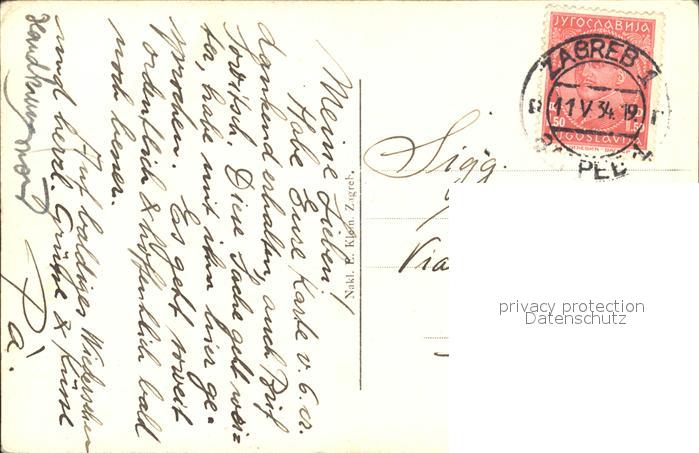 Meine Lieben!
Habe Eure Karte v. 6. cr.
dankend erhalten, auch Brief
Diese Sache geht wei=
ter, habe mit ihm hier ge=
sprochen. Es geht soweit
ordentlich & hoffentlich bald
noch besser.
Auf baldiges Wiedersehen
und herzl. Grüsse & Küsse
Pà.
Nakl. E. Klein, Zagreb.
ЈУГОСЛАВИЈА
1.50
JUGOSLAVIJA
ZAGREB 1
11 V. 34. 19
ЗАГРЕБ 1
Sigg.
Via
privacy protection
Datenschutz